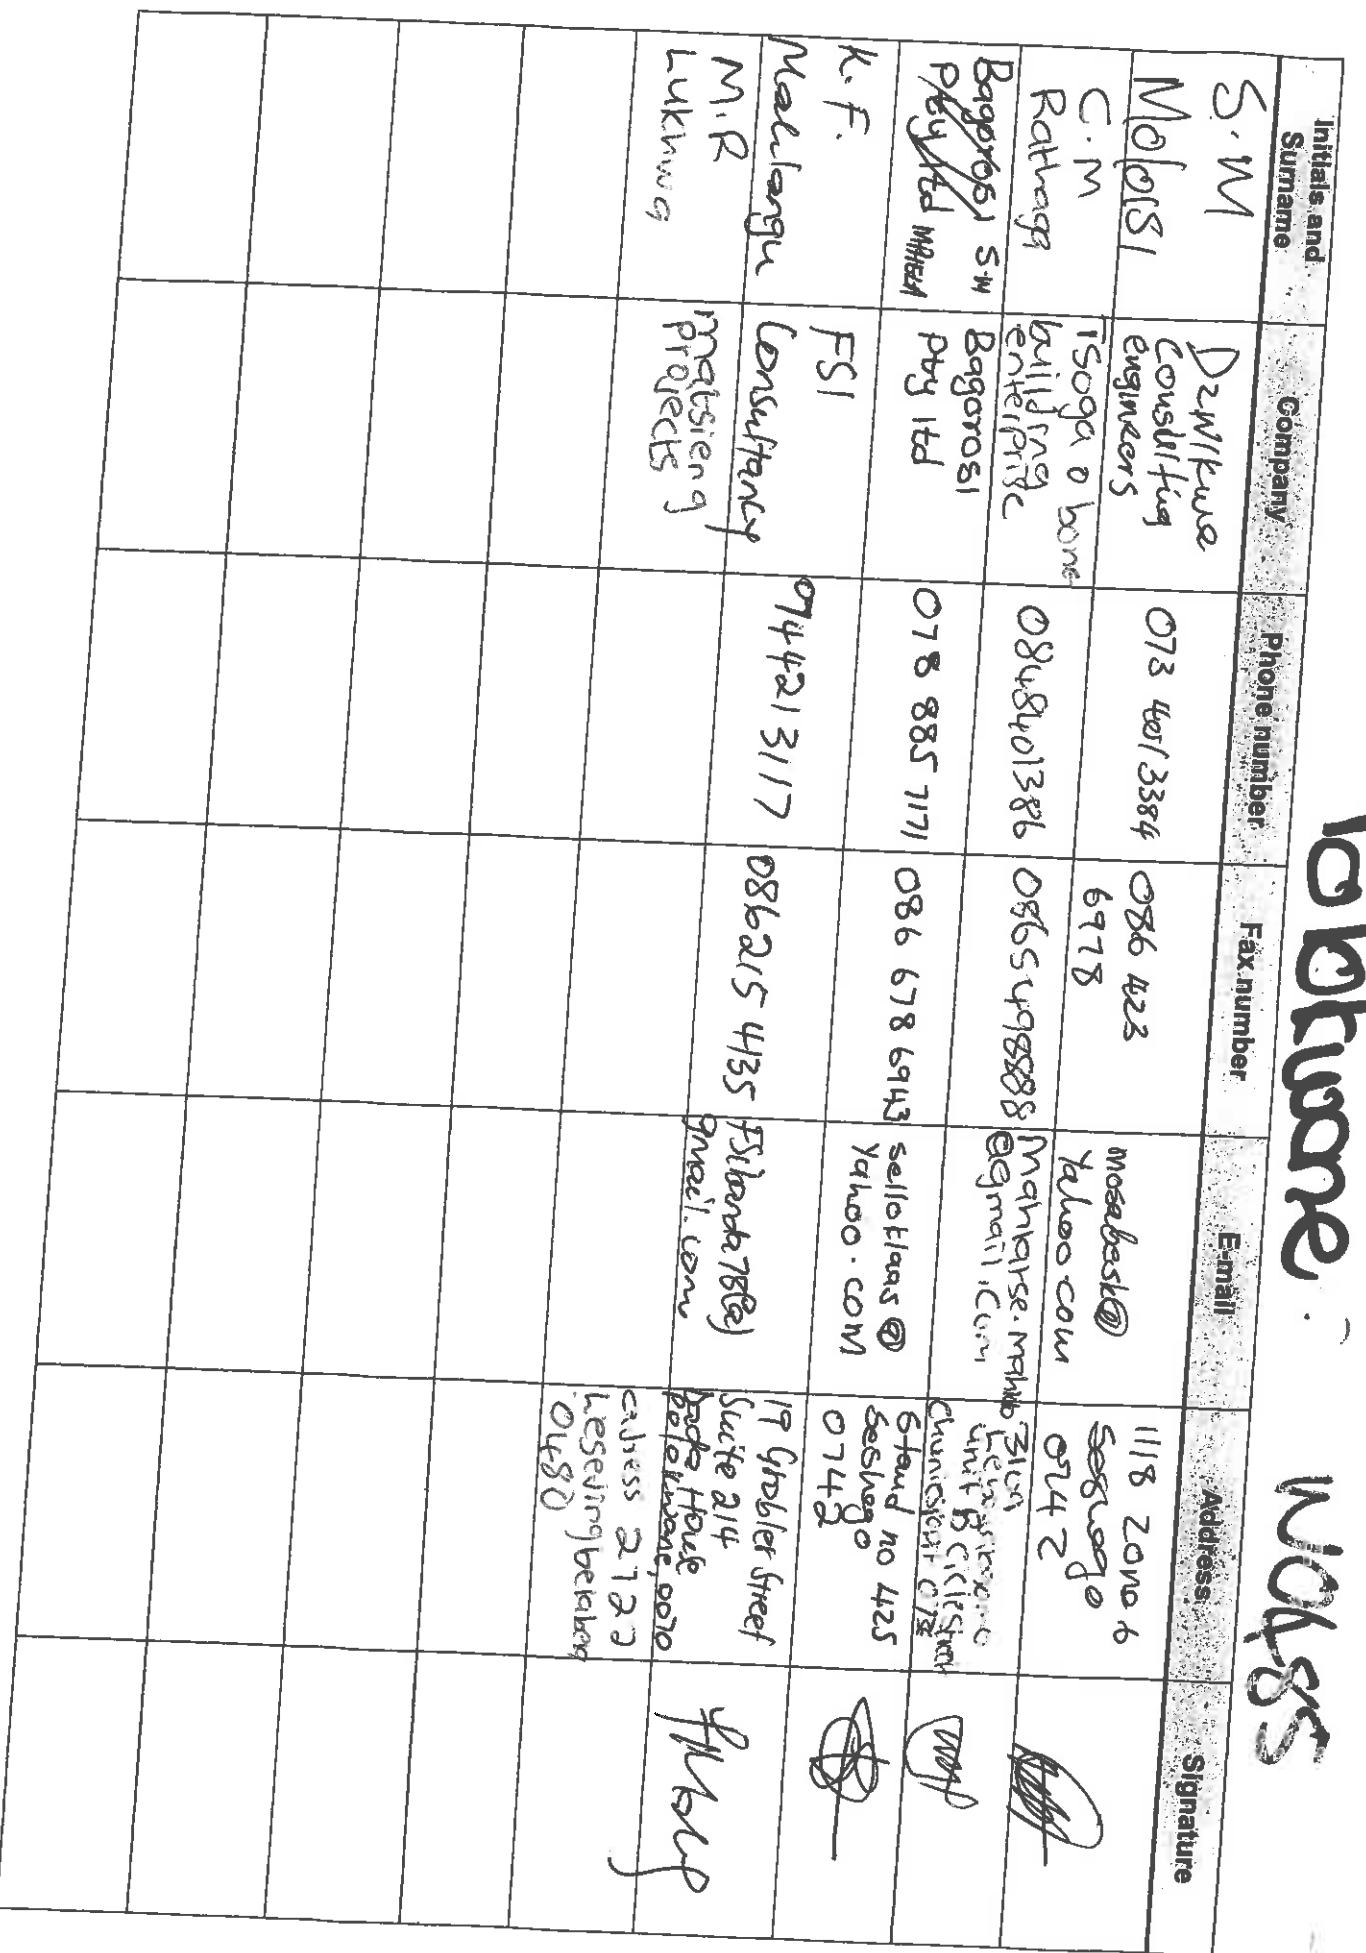 Polokwane: W9485
Initials and Surname
Company
Phone number
Fax number
E-mail
Address
Signature
S.M
Moloisi
Dzwikwa
Consulting
engineers
073 4013384
086 423
6978
mosebesk@
Yahoo.com
1118 Zone 6
Seshego
0742
C.M
Rathaga
Tsoga o bone
building
enterprise
0848401386
0865498888
@gmail.com
unit B
Bagorosi SM
Pty ltd
Bagorosi
Pty ltd
078 885 7171
086 678 6943
sellotlaas@
Yahoo.com
Stand no 425
Seshego
0742
K.F.
Mahlangu
FSI
Consultancy
0744213117
086215 4135
FSibanda78@
gmail.com
19 Grobler Street
Suite 214
House
Polokwane, 0070
M.R
Lukhwa
matsieng
projects
2722
0480